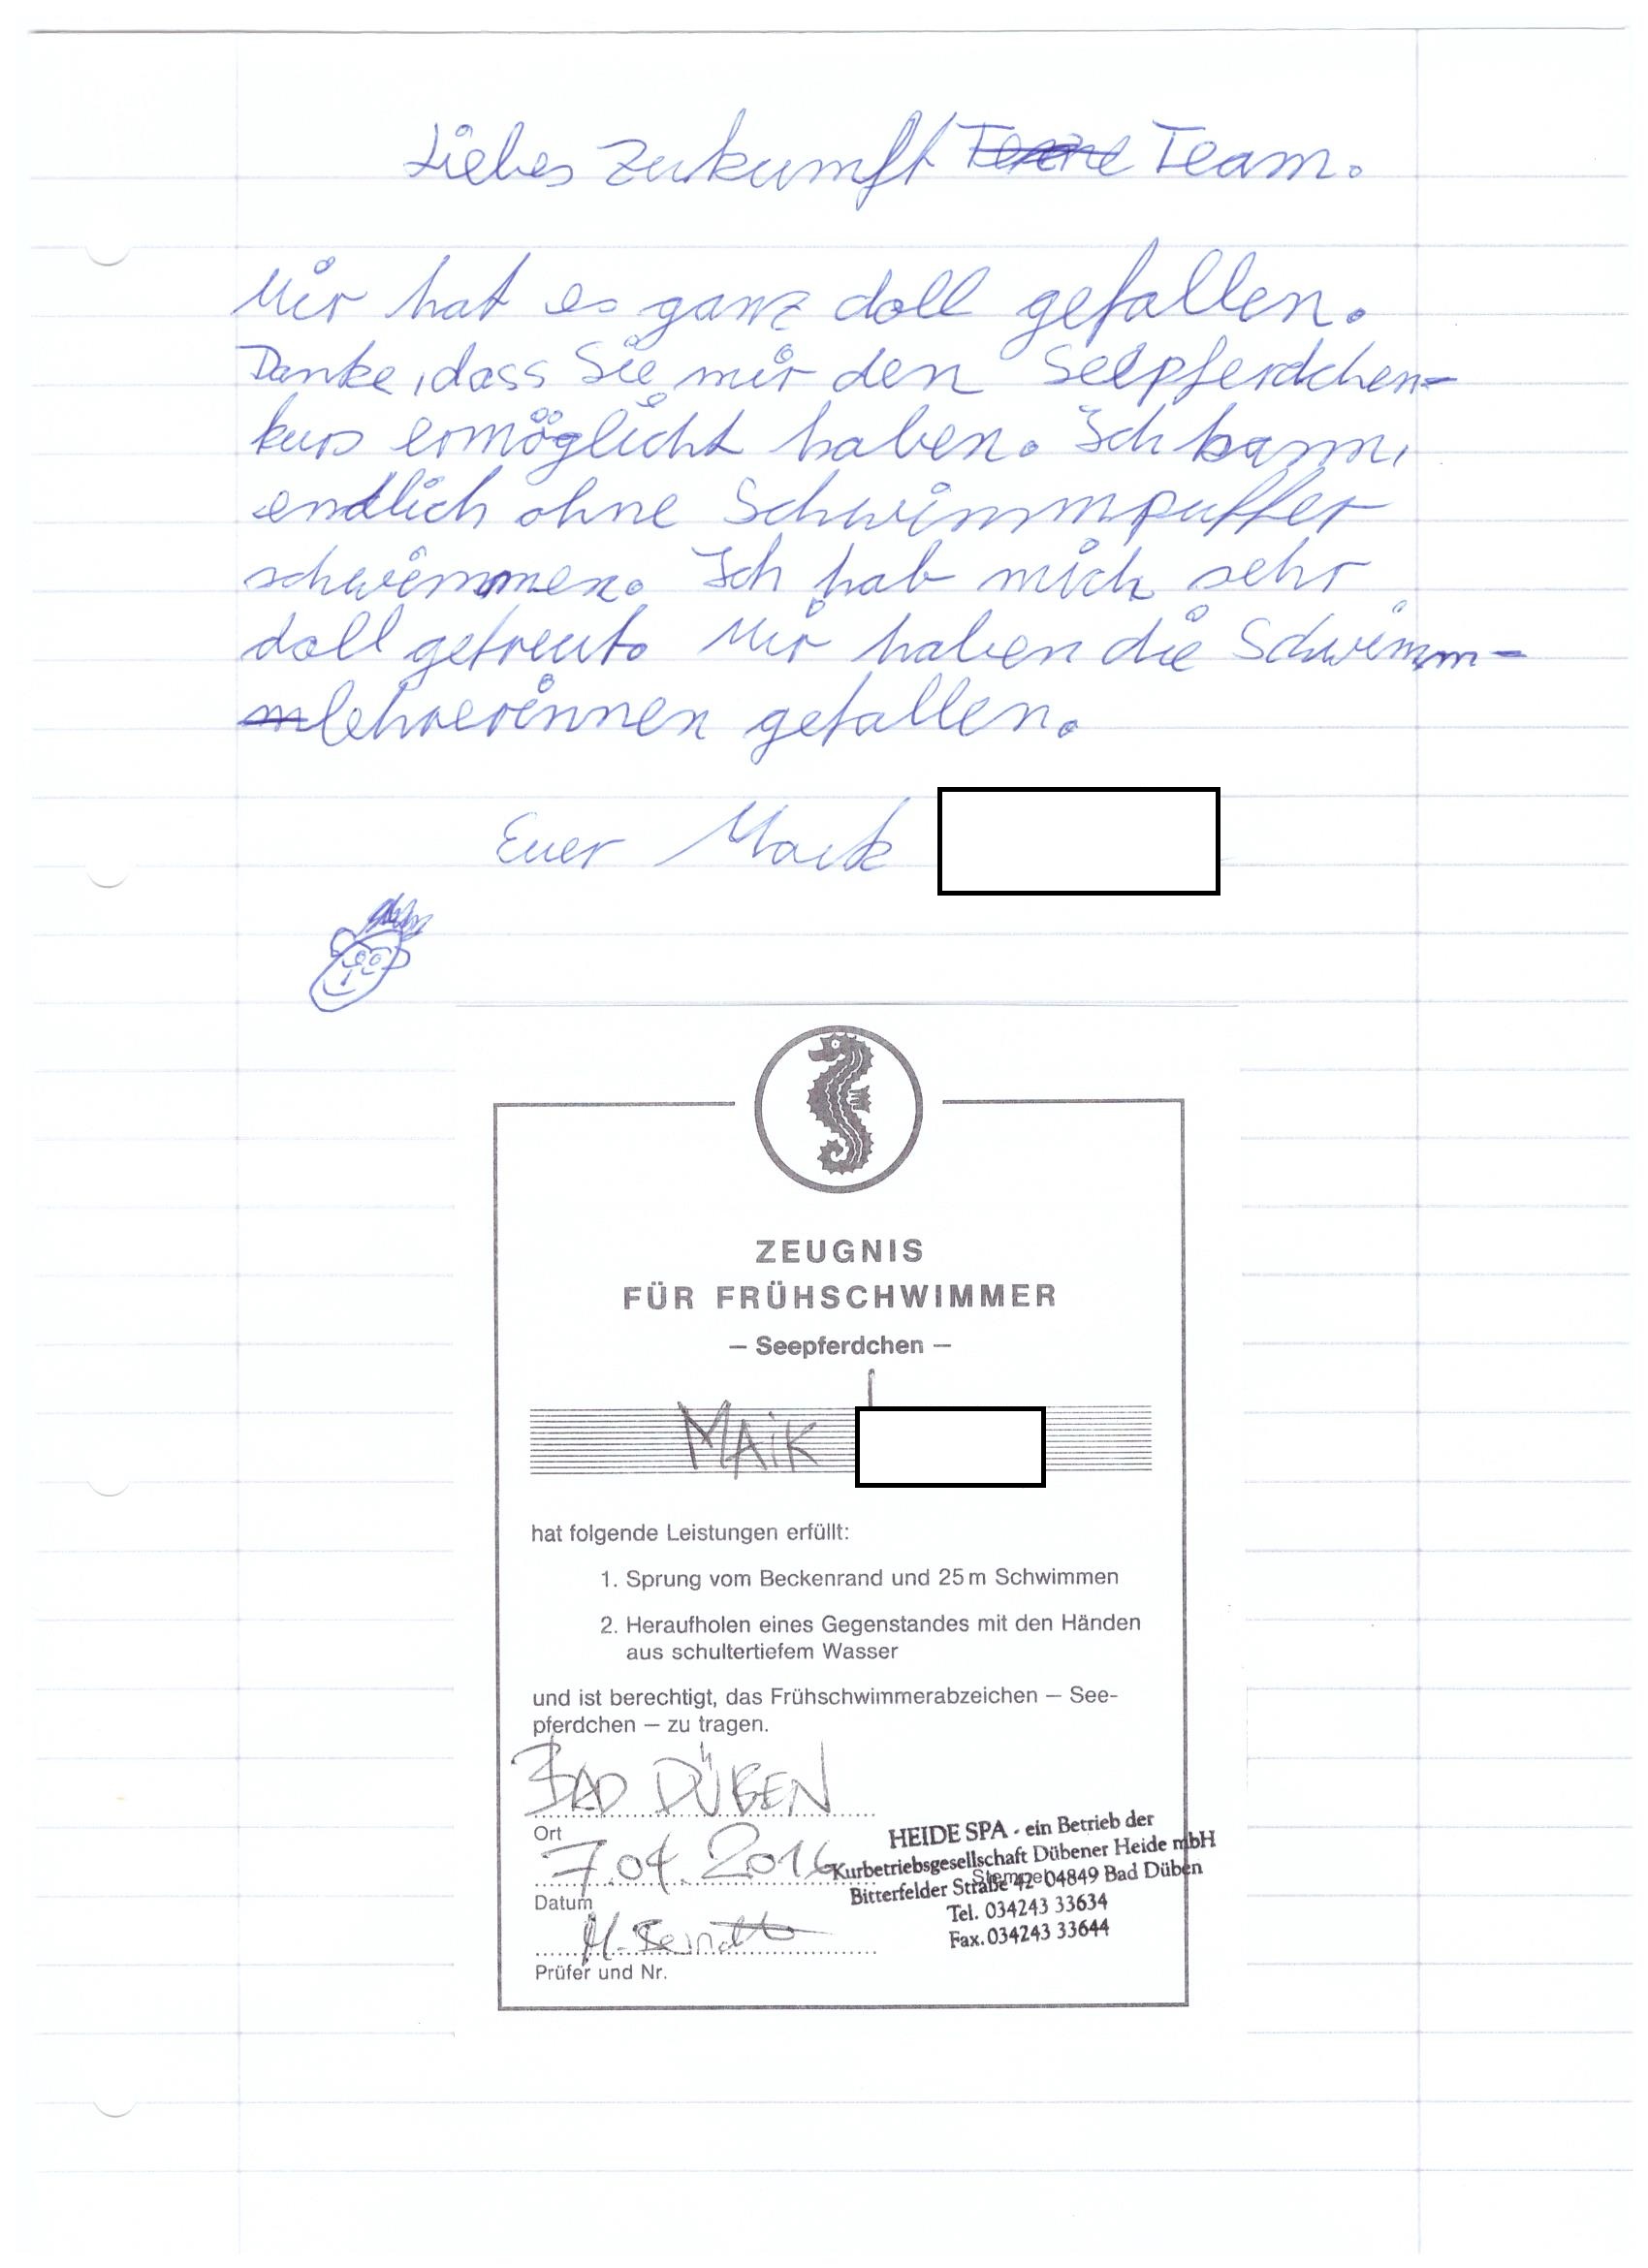 Liebes Zukunft Team.
Mir hat es ganz doll gefallen.
Danke, dass Sie mir den Seepferdchen-
kurs ermöglicht haben. Ich kann,
endlich ohne Schwimmpuffer
schwimmen. Ich hab mich sehr
doll gefreut. Mir haben die Schwimm-
lehrerinnen gefallen.
Euer Maik
ZEUGNIS
FÜR FRÜHSCHWIMMER
– Seepferdchen –
MAiK
hat folgende Leistungen erfüllt:
1. Sprung vom Beckenrand und 25 m Schwimmen
2. Heraufholen eines Gegenstandes mit den Händen
aus schultertiefem Wasser
und ist berechtigt, das Frühschwimmerabzeichen – See-
pferdchen – zu tragen.
BAD DÜBEN
Ort
7.04.2016
Datum
Prüfer und Nr.
HEIDE SPA - ein Betrieb der
Kurbetriebsgesellschaft Dübener Heide mbH
Stempel
Bitterfelder Straße 42 04849 Bad Düben
Tel. 034243 33634
Fax. 034243 33644